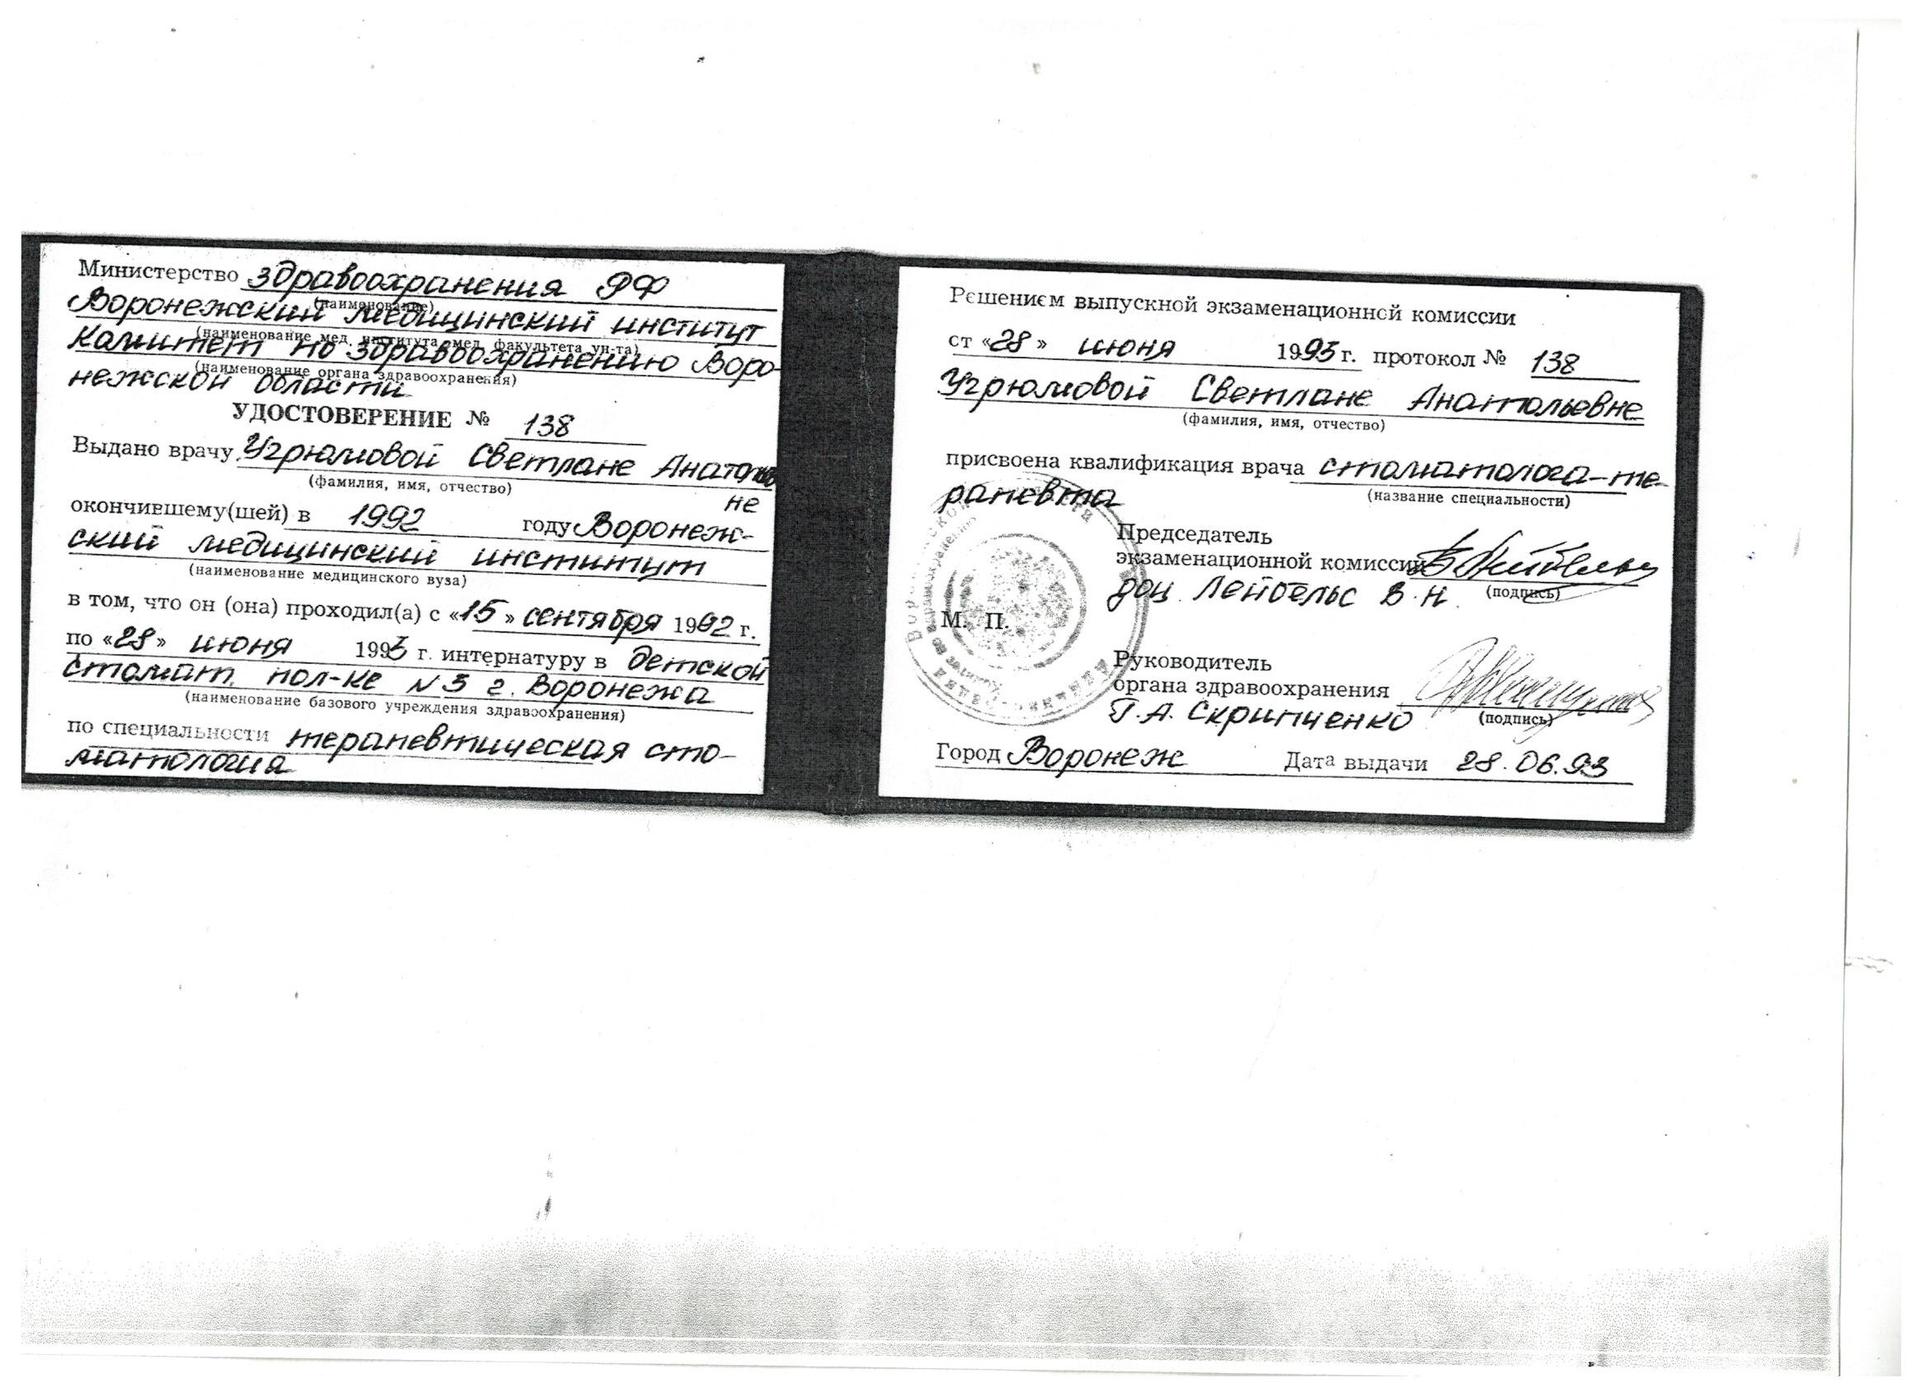 Министерство здравоохранения РФ
(наименование)
Воронежский медицинский институт
(наименование мед. института, мед. факультета ун-та)
Комитет по здравоохранению Воро-
(наименование органа здравоохранения)
нежской области
УДОСТОВЕРЕНИЕ № 138
Выдано врачу Угрюмовой Светлане Анатолье
(фамилия, имя, отчество)
не
окончившему(шей) в 1992 году Воронеж-
ский медицинский институт
(наименование медицинского вуза)
в том, что он (она) проходил(а) с «15» сентября 1992 г.
по «28» июня 1993 г. интернатуру в детской
стомат. пол-ке N 3 г. Воронежа
(наименование базового учреждения здравоохранения)
по специальности терапевтическая сто-
матология
Решением выпускной экзаменационной комиссии
от «28» июня 1993 г. протокол № 138
Угрюмовой Светлане Анатольевне
(фамилия, имя, отчество)
присвоена квалификация врача стоматолога-те-
(название специальности)
рапевта
Председатель
экзаменационной комиссии
(подпись)
доц. Лейбельс В.Н.
М. П.
Руководитель
органа здравоохранения
(подпись)
Г.А. Скрипченко
Город Воронеж Дата выдачи 28.06.93